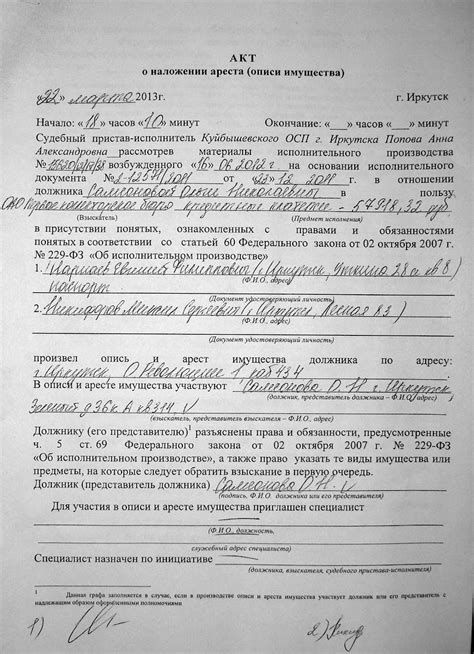 АКТ
о наложении ареста (описи имущества)
«22» марта 2013г. г. Иркутск
Начало: «18» часов «10» минут Окончание: «__» часов «__» минут
Судебный пристав-исполнитель Куйбышевского ОСП г. Иркутска Попова Анна
Александровна рассмотрев материалы исполнительного производства
№ возбужденного «16» 06.2012 г на основании исполнительного
документа № от «23» 12. 2011 г. в отношении
должника Самсоновой Николаевны в пользу
ОАО Первое коллекторское бюро кредитные платежи - 57918,32 руб.
(Взыскатель) (Предмет исполнения)
в присутствии понятых, ознакомленных с правами и обязанностями
понятых в соответствии со статьей 60 Федерального закона от 02 октября 2007 г.
№ 229-ФЗ «Об исполнительном производстве»
1. Филиппович г. Иркутск, 28 кв 8
(Ф.И.О., адрес)
паспорт
(Документ удостоверяющий личность)
2. Никифоров Михаил Сергеевич г. Иркутск, Лесная
(Ф.И.О., адрес)
(Документ удостоверяющий личность)
произвел опись и арест имущества должника по адресу:
г. Иркутск, О. Революции 1
В описи и аресте имущества участвуют Самсонова О. Н г. Иркутск,
(должник, представитель должника – Ф.И.О.)
Зеленый д 36
(взыскатель, представитель взыскателя – Ф.И.О., адрес)
Должнику (его представителю)1 разъяснены права и обязанности, предусмотренные
ч. 5 ст.69 Федерального закона от 02 октября 2007 г. № 229-ФЗ
«Об исполнительном производстве», а также право указать те виды имущества или
предметы, на которые следует обратить взыскание в первую очередь.
Должник (представитель должника) Самсонова О. Н.
(подпись, Ф.И.О. должника или его представителя)
Для участия в описи и аресте имущества приглашен специалист
(Ф.И.О., должность,
служебный адрес специалиста)
Специалист назначен по инициативе
(должника, взыскателя, судебного пристава-исполнителя)
1 Данная графа заполняется в случае, если в производстве описи и ареста имущества участвует должник или его представитель с
надлежащим образом оформленными полномочиями
1) 2)